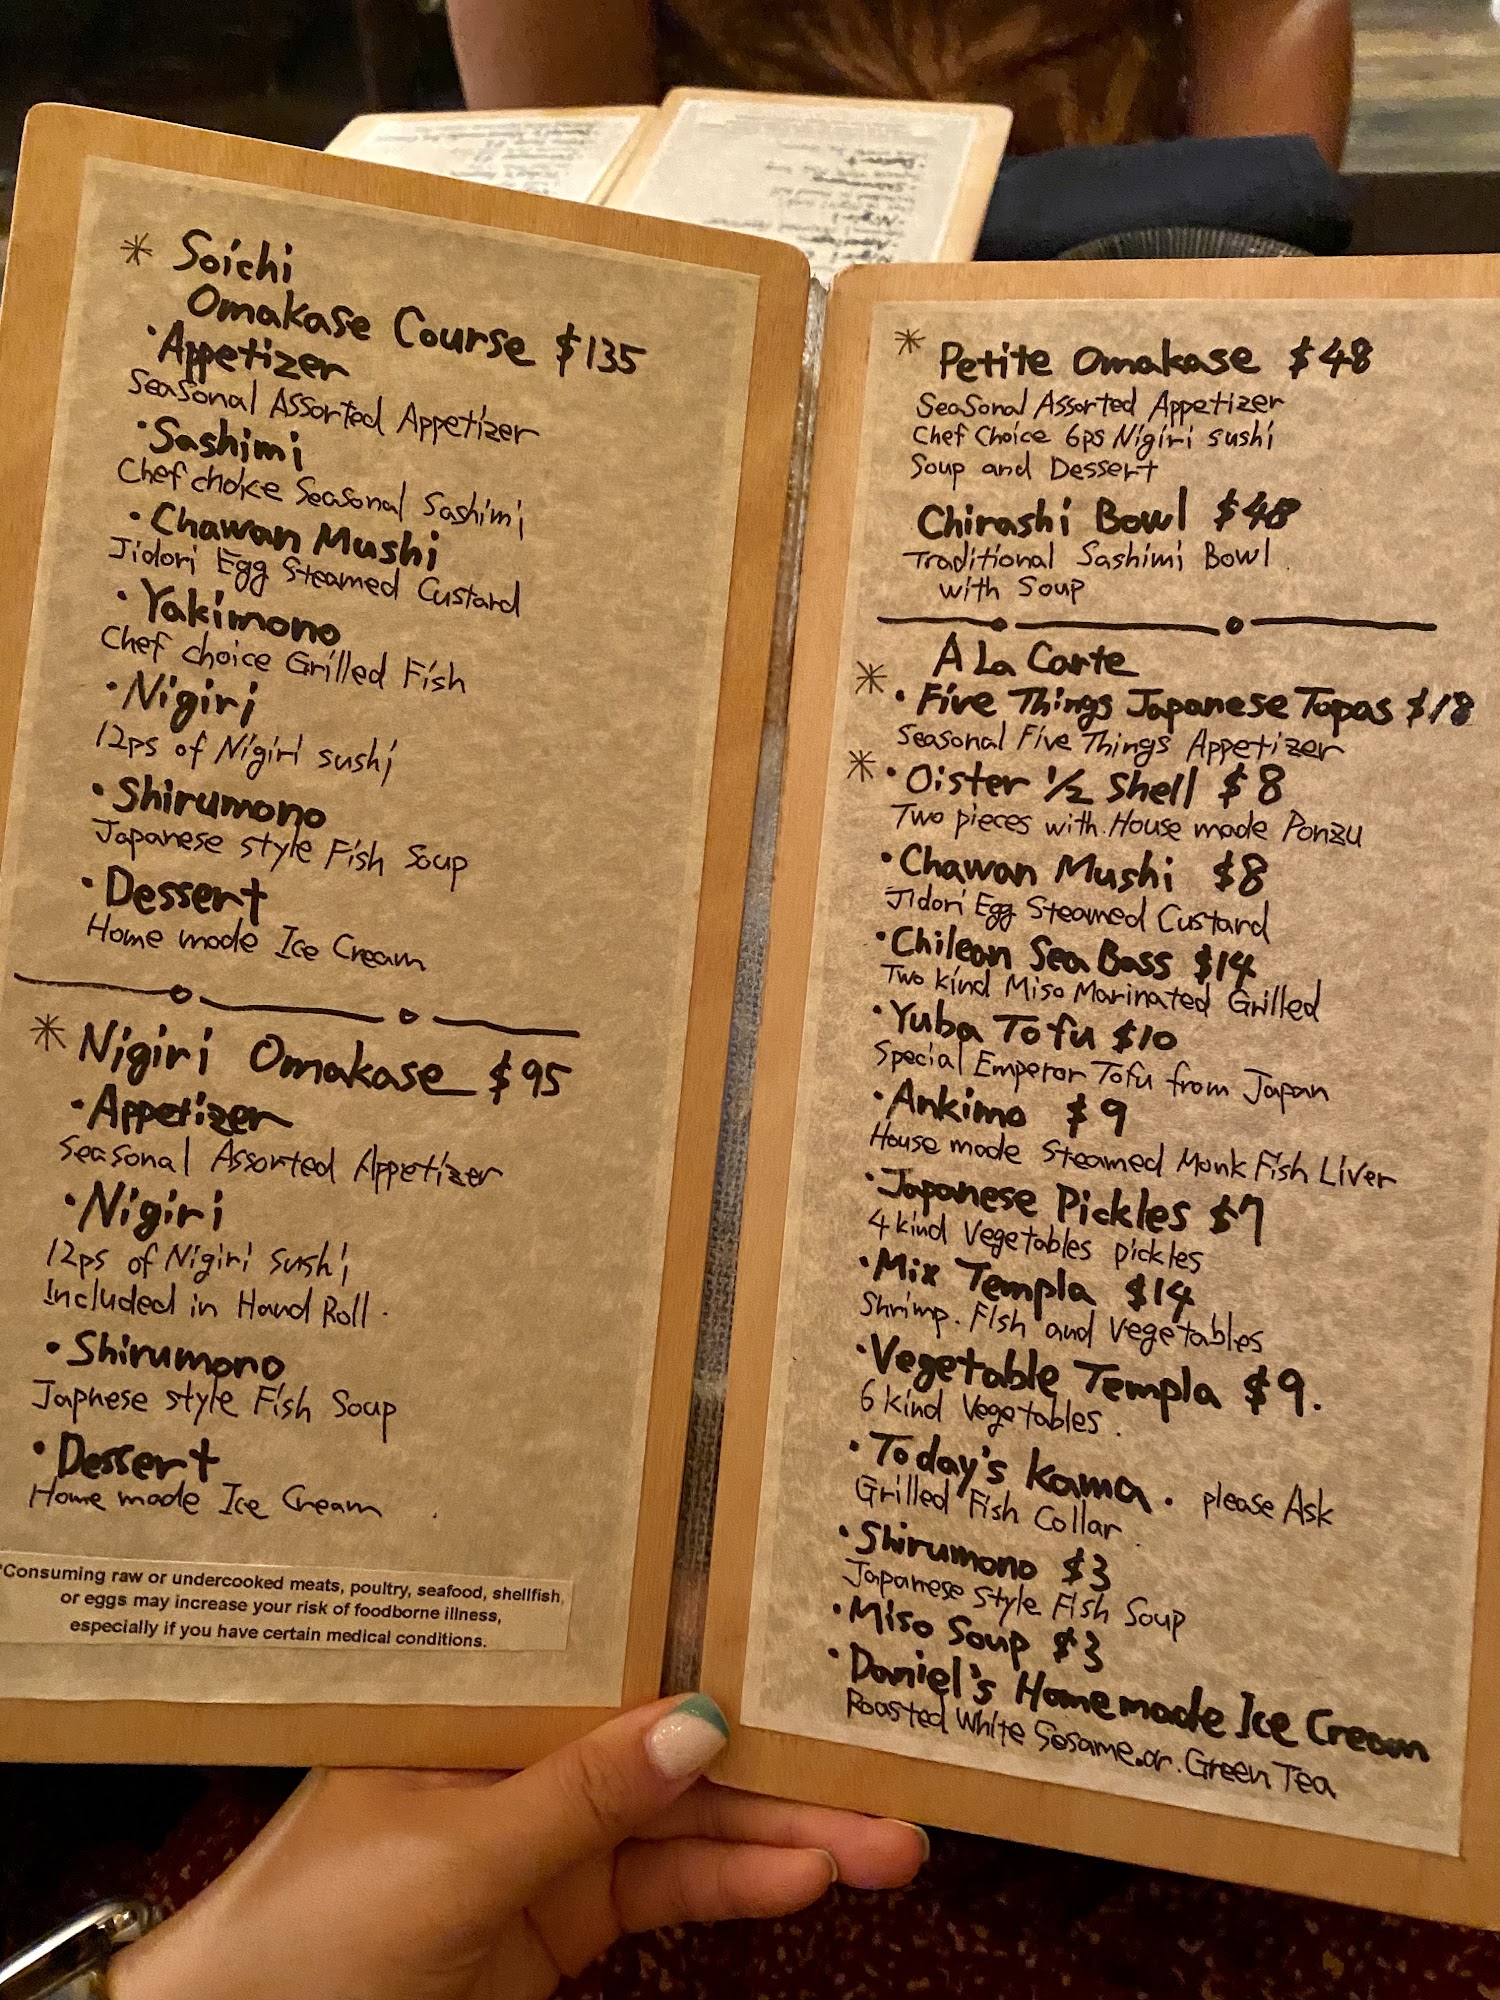 * Soichi
Omakase Course $135
· Appetizer
Seasonal Assorted Appetizer
· Sashimi
Chef choice Seasonal Sashimi
· Chawan Mushi
Jidori Egg Steamed Custard
· Yakimono
Chef choice Grilled Fish
· Nigiri
12ps of Nigiri sushi
· Shirumono
Japanese style Fish Soup
· Dessert
Home made Ice Cream
* Nigiri Omakase $95
· Appetizer
Seasonal Assorted Appetizer
· Nigiri
12ps of Nigiri sushi
Included in Hand Roll.
· Shirumono
Japnese style Fish Soup
· Dessert
Home made Ice Cream
*Consuming raw or undercooked meats, poultry, seafood, shellfish,
or eggs may increase your risk of foodborne illness,
especially if you have certain medical conditions.
* Petite Omakase $48
Seasonal Assorted Appetizer
Chef Choice 6ps Nigiri sushi
Soup and Dessert
Chirashi Bowl $48
Traditional Sashimi Bowl
with Soup
A La Carte
* · Five Things Japanese Tapas $18
Seasonal Five Things Appetizer
* · Oister 1/2 Shell $8
Two pieces with House made Ponzu
· Chawan Mushi $8
Jidori Egg Steamed Custard
· Chilean Sea Bass $14
Two kind Miso Marinated Grilled
· Yuba Tofu $10
Special Emperor Tofu from Japan
· Ankimo $9
House made Steamed Monk Fish Liver
· Japanese Pickles $7
4 kind Vegetables pickles
· Mix Templa $14
Shrimp. Fish and Vegetables
· Vegetable Templa $9.
6 kind Vegetables.
· Today's Kama. please Ask
Grilled Fish Collar
· Shirumono $3
Japanese Style Fish Soup
· Miso Soup $3
· Daniel's Home made Ice Cream
Roasted White Sesame. or. Green Tea